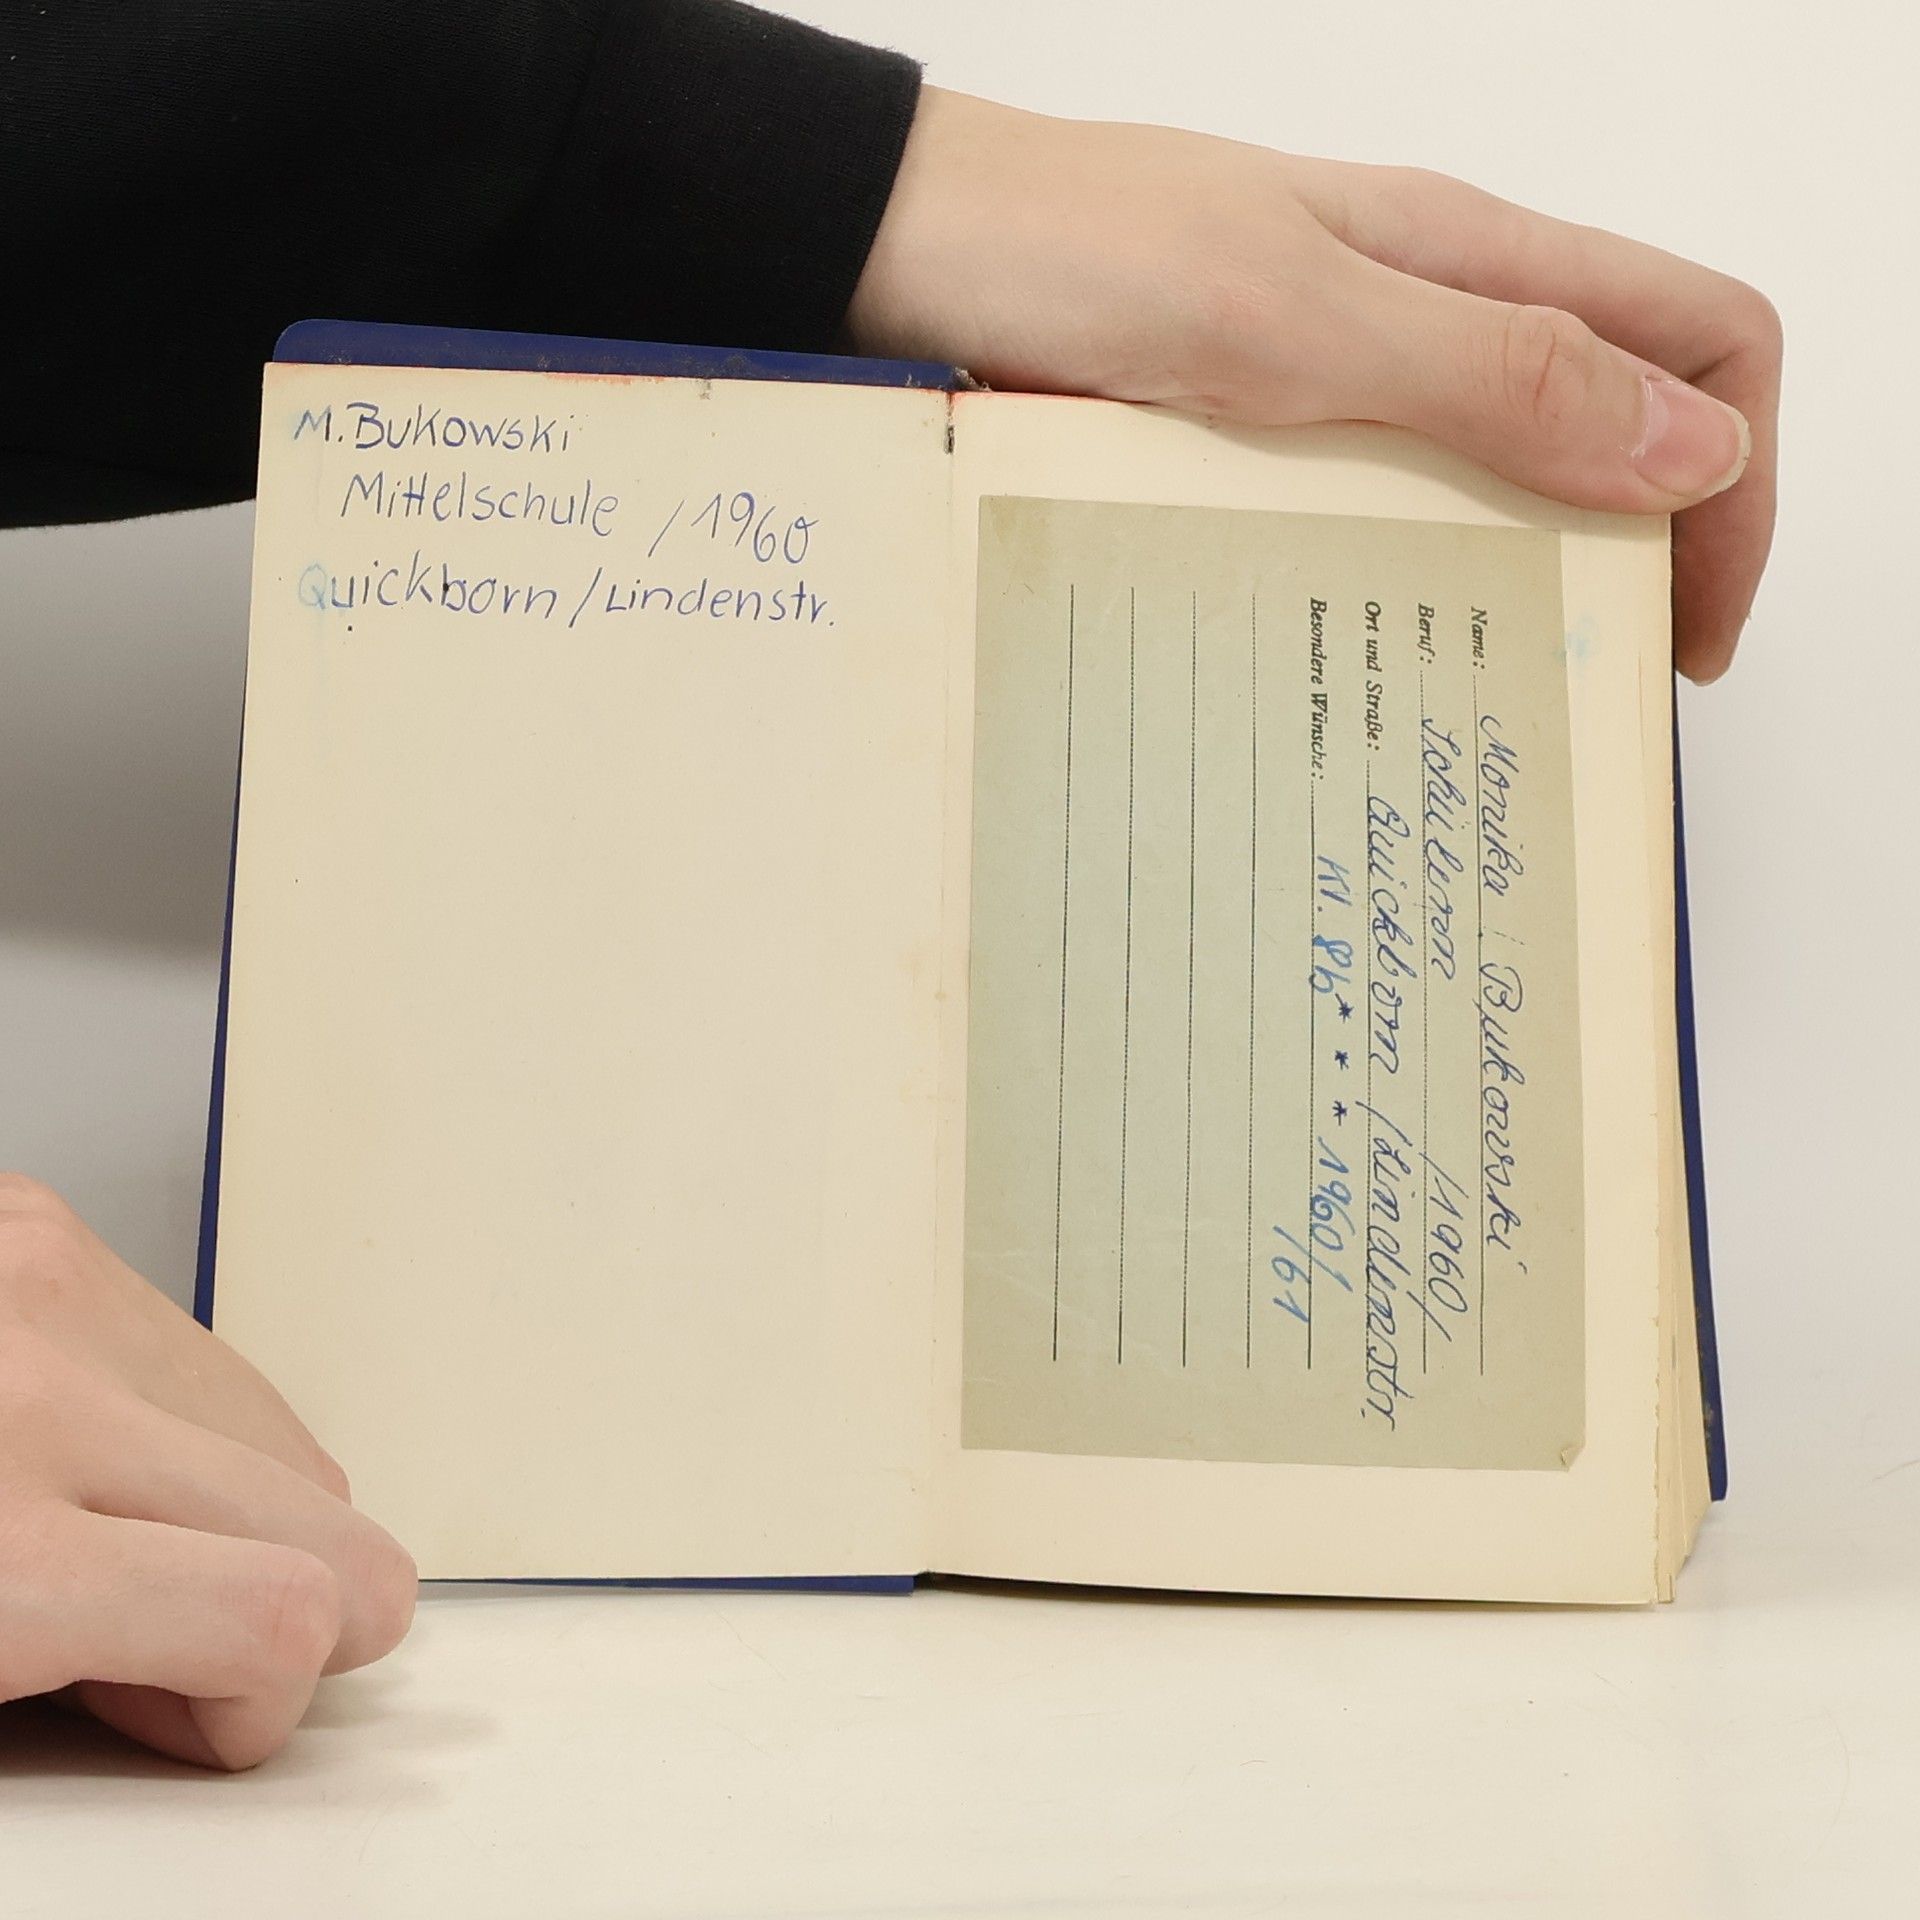 M. Bukowski
Mittelschule / 1960
Quickborn / Lindenstr.
Name: Monika Bukowski
Beruf: Schülerin /1960/
Ort und Straße: Quickborn /Lindenstr.
Besondere Wünsche: Kl. 8b * * * 1960/
/61